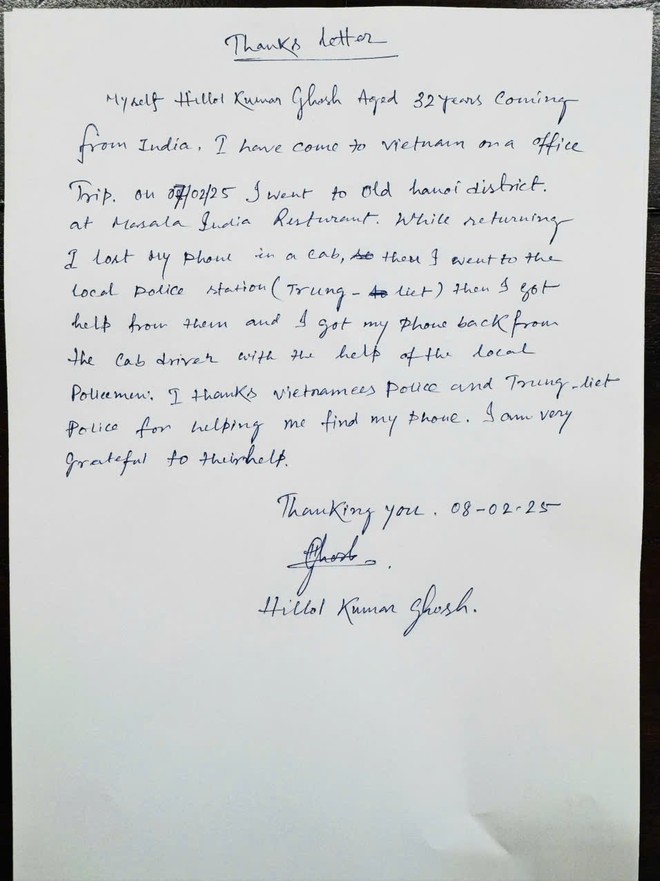 Thanks letter
Myself Hillol Kumar Ghosh Aged 32 years coming
from India. I have come to vietnam on a office
Trip. on 07/02/25 I went to Old hanoi district.
at Masala India Resturant. While returning
I lost my phone in a cab, then I went to the
local police station (Trung - liet) then I got
help from them and I got my phone back from
the cab driver with the help of the local
Policemen. I thanks vietnamees police and Trung-liet
police for helping me find my phone. I am very
grateful to their help.
Thanking you. 08-02-25
Ghosh
Hillol Kumar Ghosh.